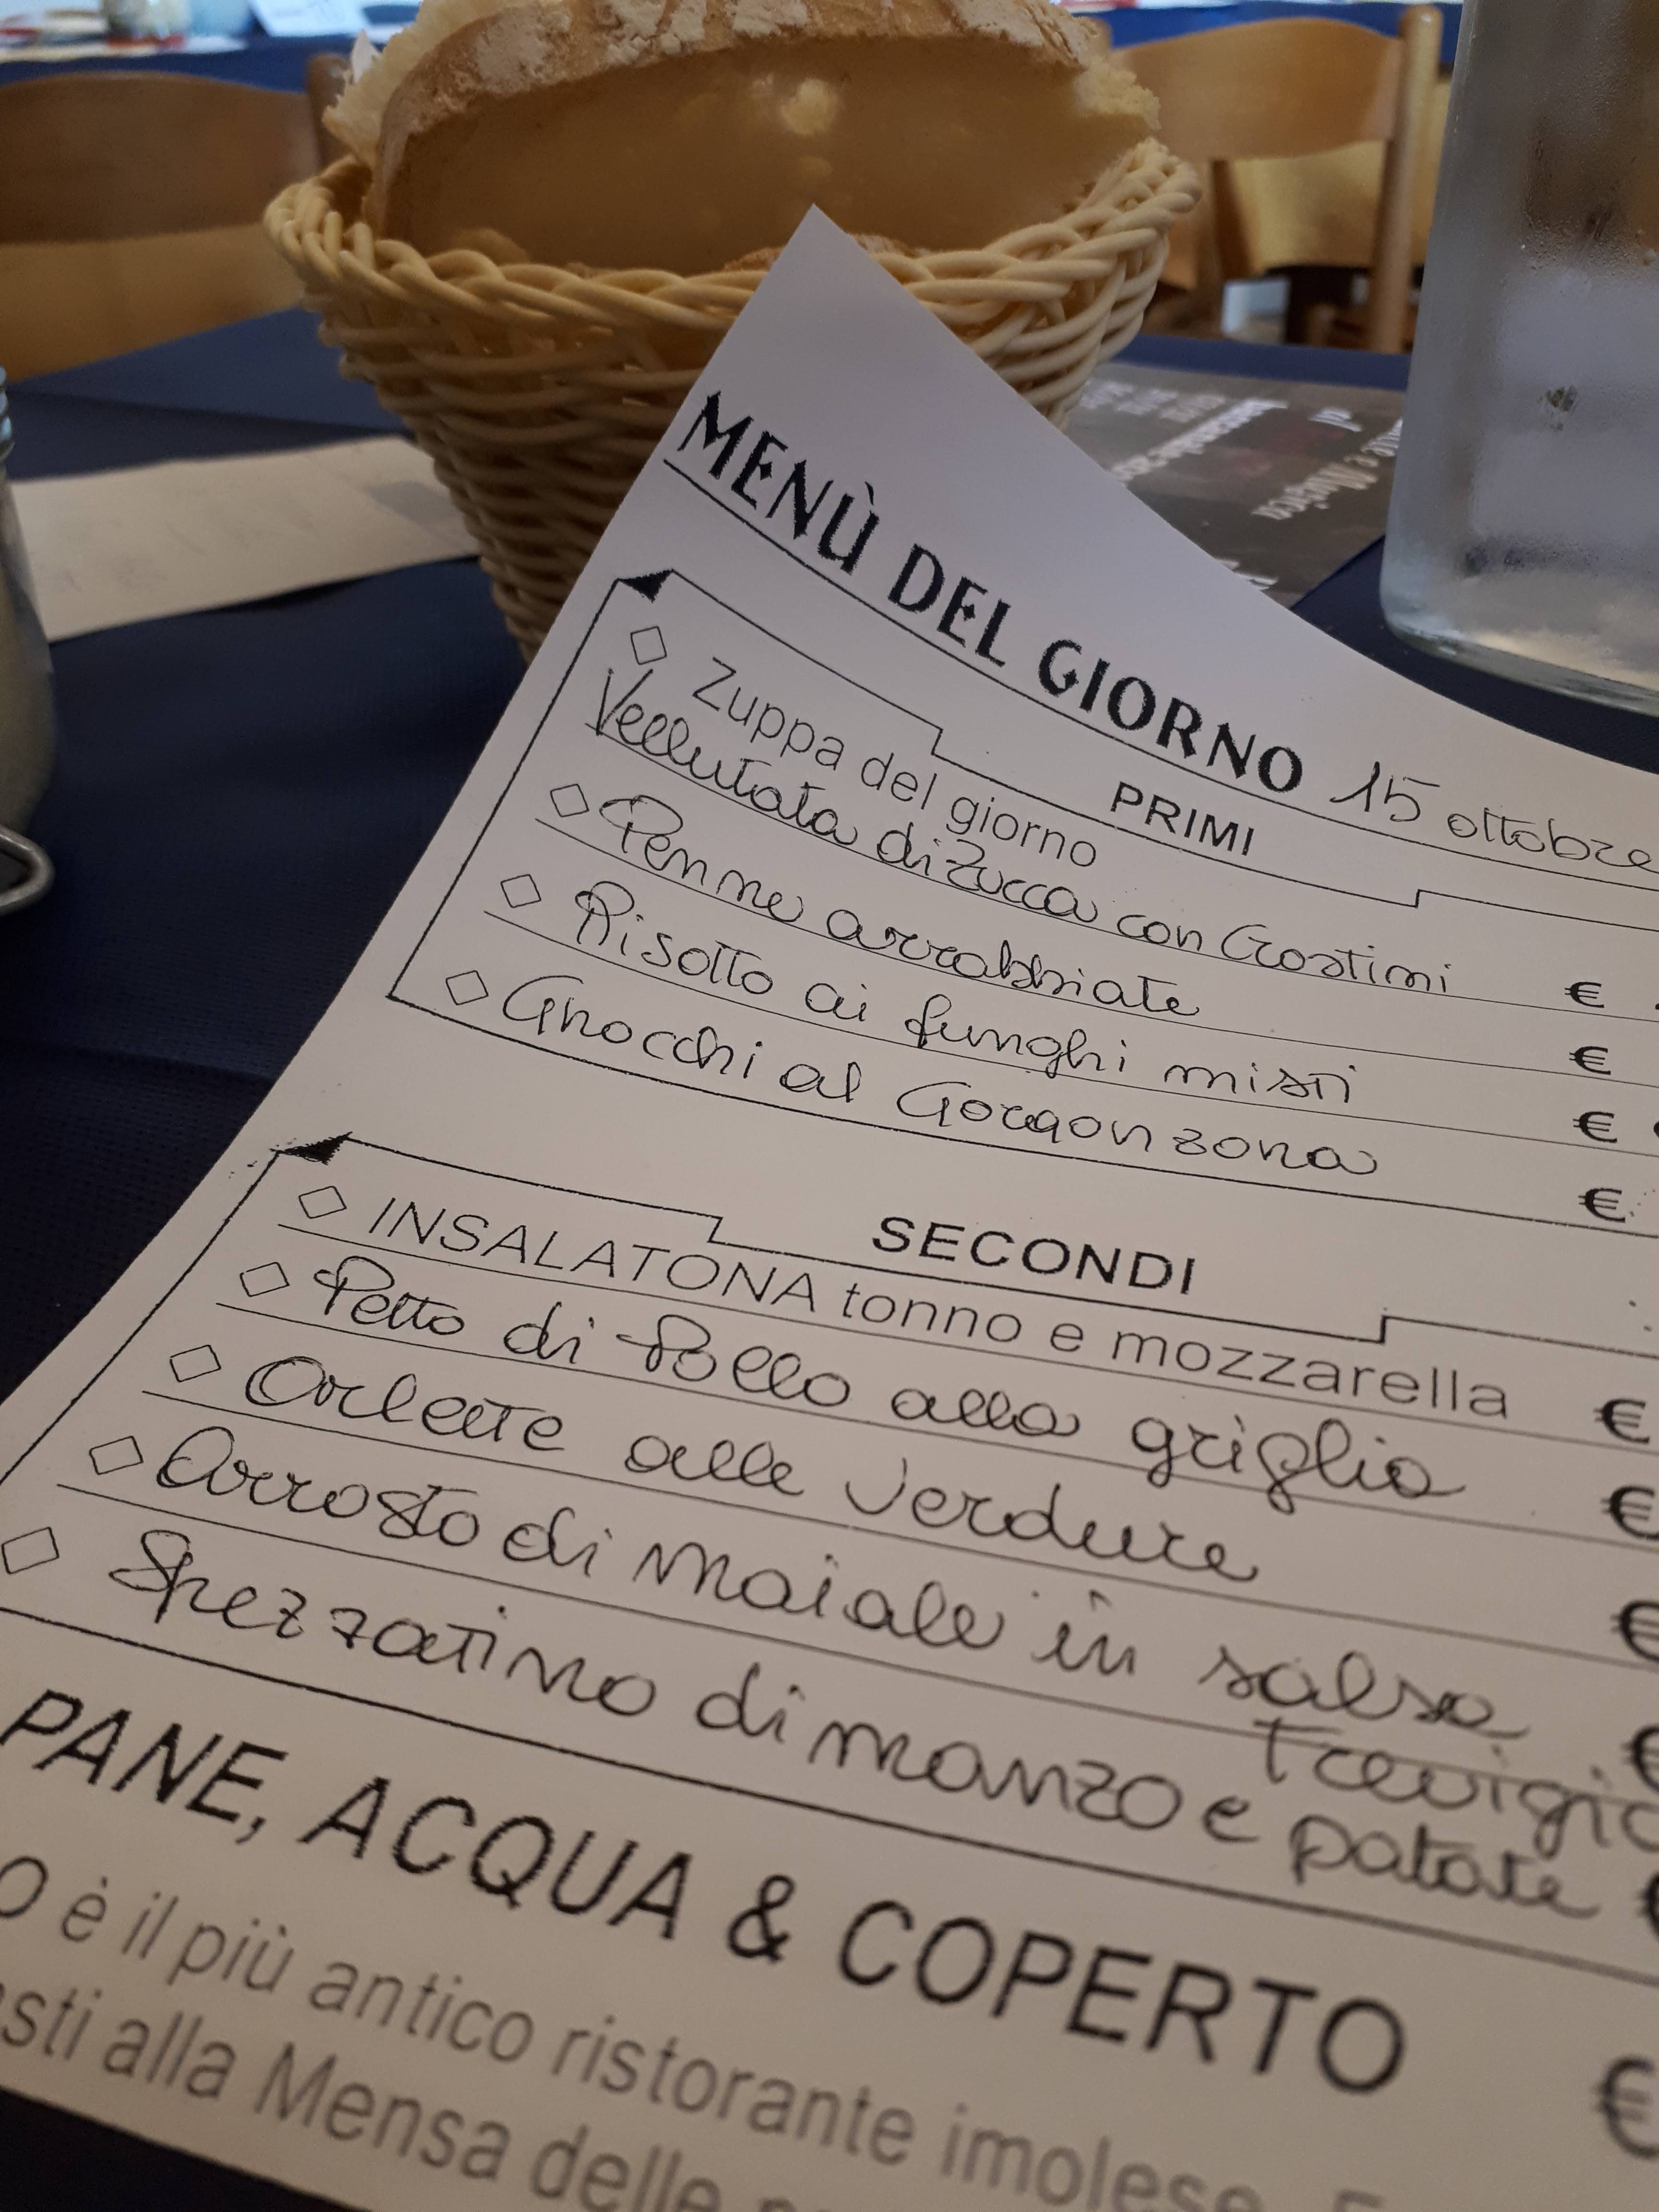 MENÙ DEL GIORNO 15 ottobre
PRIMI
Zuppa del giorno
Vellutata di Zucca con Crostini €
Penne arrabbiate €
Risotto ai funghi misti €
Gnocchi al Gorgonzona €
SECONDI
INSALATONA tonno e mozzarella €
Petto di Pollo alla griglia €
Orlette alle verdure €
Arrosto di maiale in salsa €
Trevigi
Spezzatino di manzo e patate €
PANE, ACQUA & COPERTO €
O è il più antico ristorante imolese.
sti alla Mensa delle